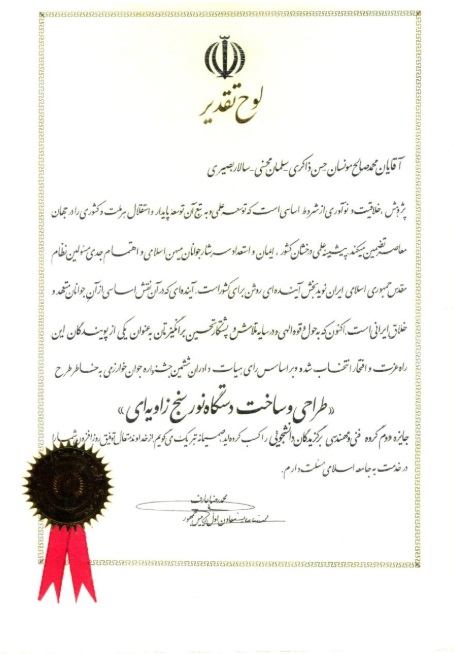 لوح تقدیر
آقایان محمد صالح مونسان حسن ذاکری سلمان محبی سالار بصیری
پژوهش، خلاقیت و نوآوری از شروط اساسی است که توسعه علمی و به تبع آن توسعه پایدار و استقلال هر ملت و کشوری را در جهان
معاصر تضمین میکند. پیشینه علمی درخشان کشور، ایمان و استعداد سرشار جوانان میهن اسلامی و اهتمام جدی مسئولین نظام
مقدس جمهوری اسلامی ایران نوید بخش آینده ای روشن برای کشور است. آینده ای که در آن نقش اساسی از آن جوانان متعهد و
خلاق ایرانی است. اکنون که به حول و قوه الهی و در سایه تلاش و پشتکار تحسین برانگیزتان به عنوان یکی از پویندگان این
راه عزت و افتخار انتخاب شده و بر اساس رای هیات داوران ششمین جشنواره جوان خوارزمی به خاطر طرح
«طراحی و ساخت دستگاه نور سنج زاویه ای»
جایزه دوم گروه فنی و مهندسی برگزیدگان دانشجویی را کسب کرده اید صمیمانه تبریک می گویم. از خداوند متعال توفیق روز افزون شما را
در خدمت به جامعه اسلامی مسئلت دارم.
محمدرضا عارف
معاون اول رئیس جمهور